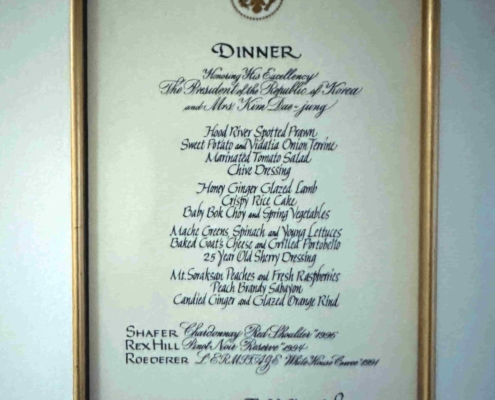 DINNER
Honoring His Excellency
The President of the Republic of Korea
and Mrs. Kim Dae-jung
Hood River Spotted Prawn
Sweet Potato and Vidalia Onion Terrine
Marinated Tomato Salad
Chive Dressing
Honey Ginger Glazed Lamb
Crispy Rice Cake
Baby Bok Choy and Spring Vegetables
Mache Greens, Spinach and Young Lettuces
Baked Goat's Cheese and Grilled Portobello
25 Year Old Sherry Dressing
Mt. Soraksan Peaches and Fresh Raspberries
Peach Brandy Sabayon
Candied Ginger and Glazed Orange Rind
SHAFER Chardonnay "Red Shoulder" 1996
REX HILL Pinot Noir "Reserve" 1994
ROEDERER L'ERMITAGE "White House Cuvee" 1991